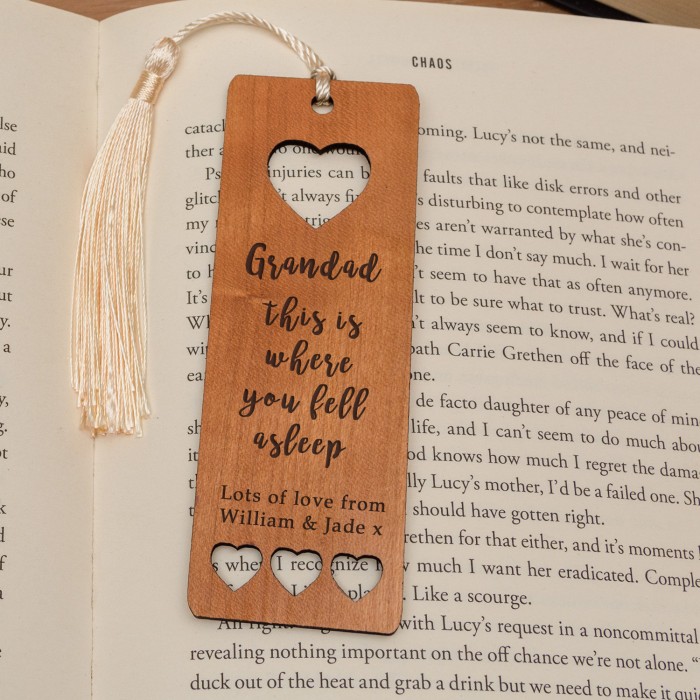 CHAOS
lse
aid
ho
of
se
ur
ut
y.
a
y,
g.
ot
k
f
a
catacl oming. Lucy's not the same, and nei-
ther a o one would
Ps injuries can b faults that like disk errors and other
glitc 't always fi s disturbing to contemplate how often
my trig es aren't warranted by what she's con-
vinc he time I don't say much. I wait for her
to h 't seem to have that as often anymore.
It's lt to be sure what to trust. What's real?
W n't always seem to know, and if I could
wi path Carrie Grethen off the face of the
ea one.
de facto daughter of any peace of min
sh life, and I can't seem to do much abou
it od knows how much I regret the dama
th lly Lucy's mother, I'd be a failed one. Sh
should have gotten right.
rethen for that either, and it's moments
s whe I recognize h w much I want her eradicated. Comple
pla . Like a scourge.
All righ with Lucy's request in a noncommittal
revealing nothing important on the off chance we're not alone. "
duck out of the heat and grab a drink but we need to make it quic
Grandad
this is
where
you fell
asleep
Lots of love from
William & Jade x